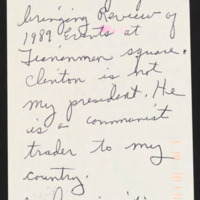 bringing Review of
1989 Events at
Tienanmen square.
Clinton is not
my president. He
is a communist
trader to my
country.